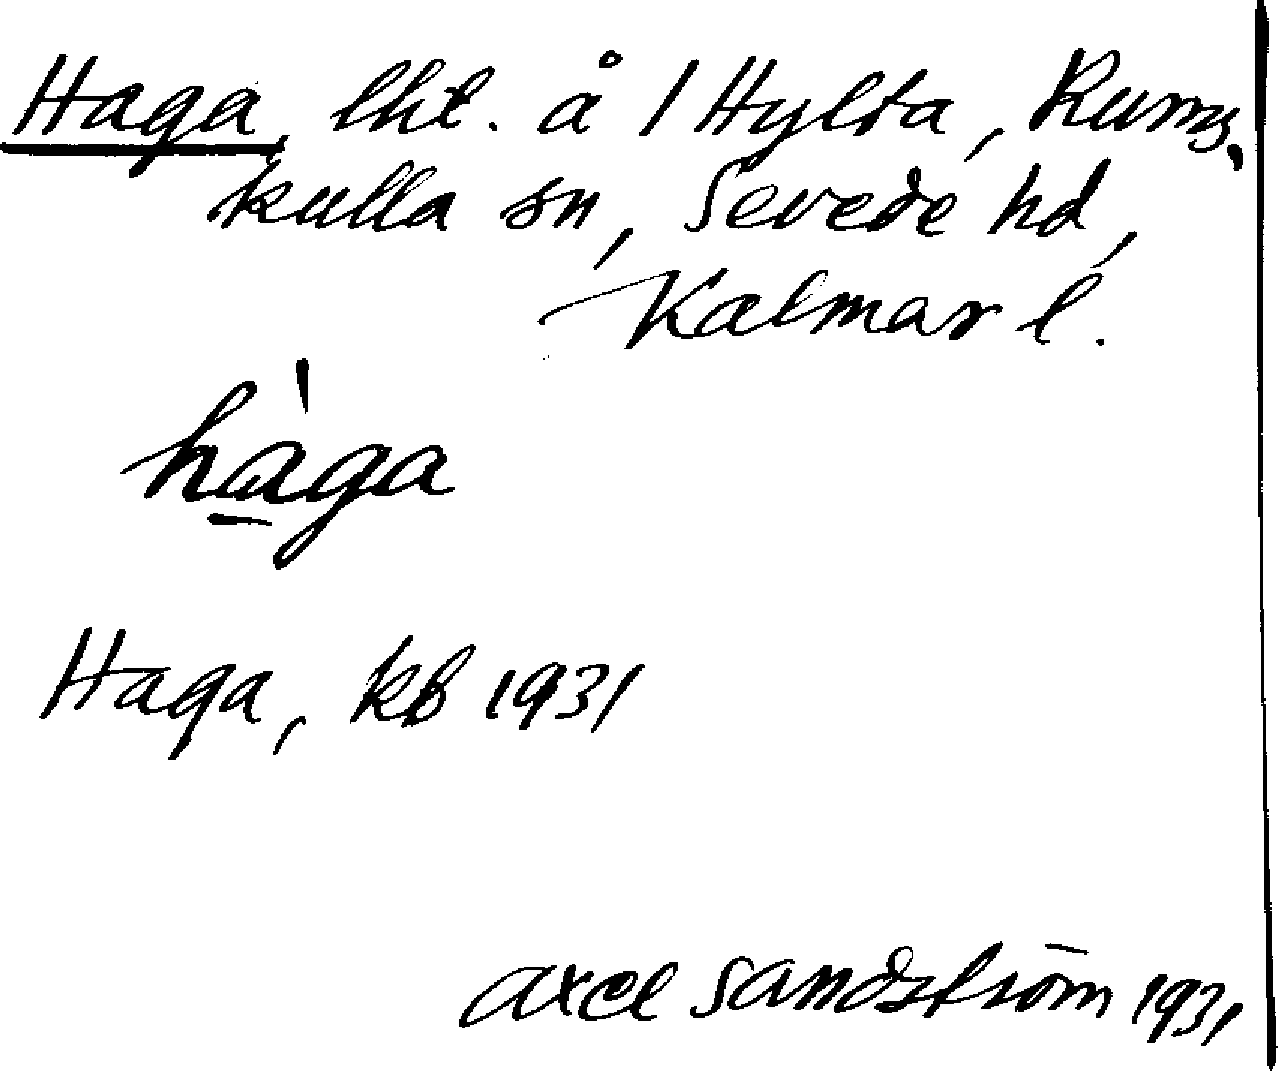 Haga, lht. å 1 Hylta, Rums,
kulla sn, Sevede hd,
Kalmar l.
hàga
Haga, kb 1931
Axel Sandström 1931